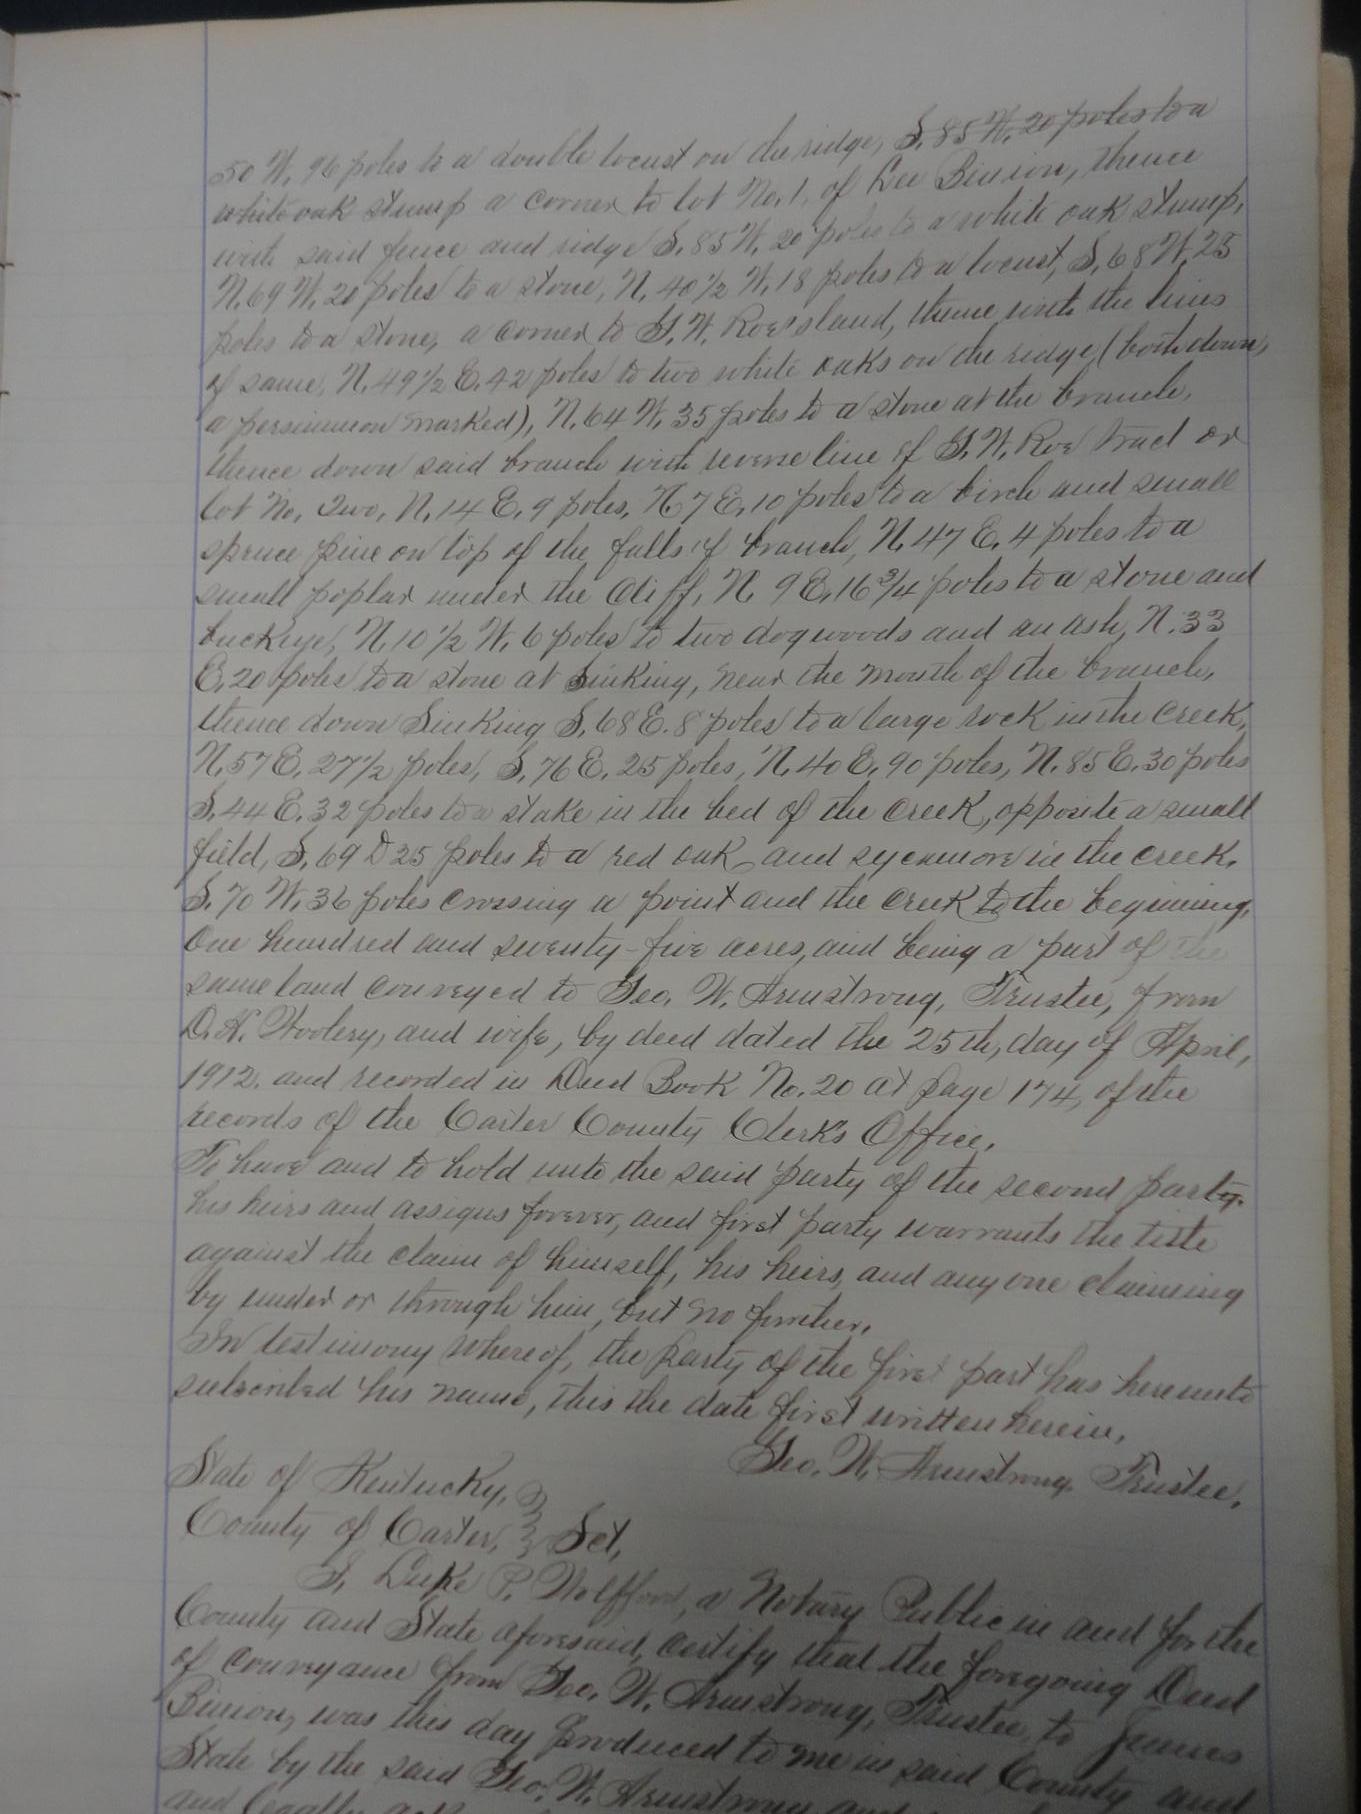 50 W. 96 poles to a double locust on the ridge, S. 85 W. 20 poles to a
white oak stump a corner to lot No. 1, of Lee Binion, thence
with said fence and ridge S. 85 W. 20 poles to a white oak stump,
N. 69 W. 20 poles to a stone, N. 40 1/2 W. 18 poles to a locust, S. 68 W. 25
poles to a stone, a corner to G. W. Roe's land, thence with the lines
of same, N. 49 1/2 E. 42 poles to two white oaks on the ridge, (both down,
a persimmon marked), N. 64 W. 35 poles to a stone at the branch,
thence down said branch with reverse line of G. W. Roe tract or
lot No. Two, N. 14 E. 9 poles, N 7 E. 10 poles to a birch and small
spruce pine on top of the falls of branch, N. 47 E. 4 poles to a
small poplar under the cliff, N. 9 E. 16 3/4 poles to a stone and
buckeye, N. 10 1/2 W. 6 poles to two dogwoods and an ash, N. 33
E. 20 poles to a stone at Sinking, near the mouth of the branch,
thence down Sinking S. 68 E. 8 poles to a large rock in the creek,
N. 57 E. 27 1/2 poles, S. 76 E. 25 poles, N. 40 E. 90 poles, N. 85 E. 30 poles
S. 44 E. 32 poles to a stake in the bed of the creek, opposite a small
field, S. 69 25 poles to a red oak and sycamore in the creek.
S. 70 W. 36 poles crossing a point and the creek to the beginning,
One hundred and seventy-five acres, and being a part of the
same land conveyed to Geo. W. Armstrong, Trustee, from
D. H. Woolery, and wife, by deed dated the 25th, day of April,
1912. and recorded in Deed Book No. 20 at page 174, of the
records of the Carter County Clerk's Office.
To have and to hold unto the said party of the second party.
his heirs and assigns forever, and first party warrants the title
against the claim of himself, his heirs, and anyone claiming
by under or through him, but no further.
In testimony whereof, the party of the first part has hereunto
subscribed his name, this the date first written herein,
Geo. W. Armstrong. Trustee.
State of Kentucky,
County of Carter, } Sct,
I, Luke P. Wolfford, a Notary Public in and for the
County and State aforesaid, certify that the foregoing Deed
of conveyance from Geo. W. Armstrong, Trustee, to James
Binion, was this day produced to me in said County and
State by the said Geo. W. Armstrong and
and legally